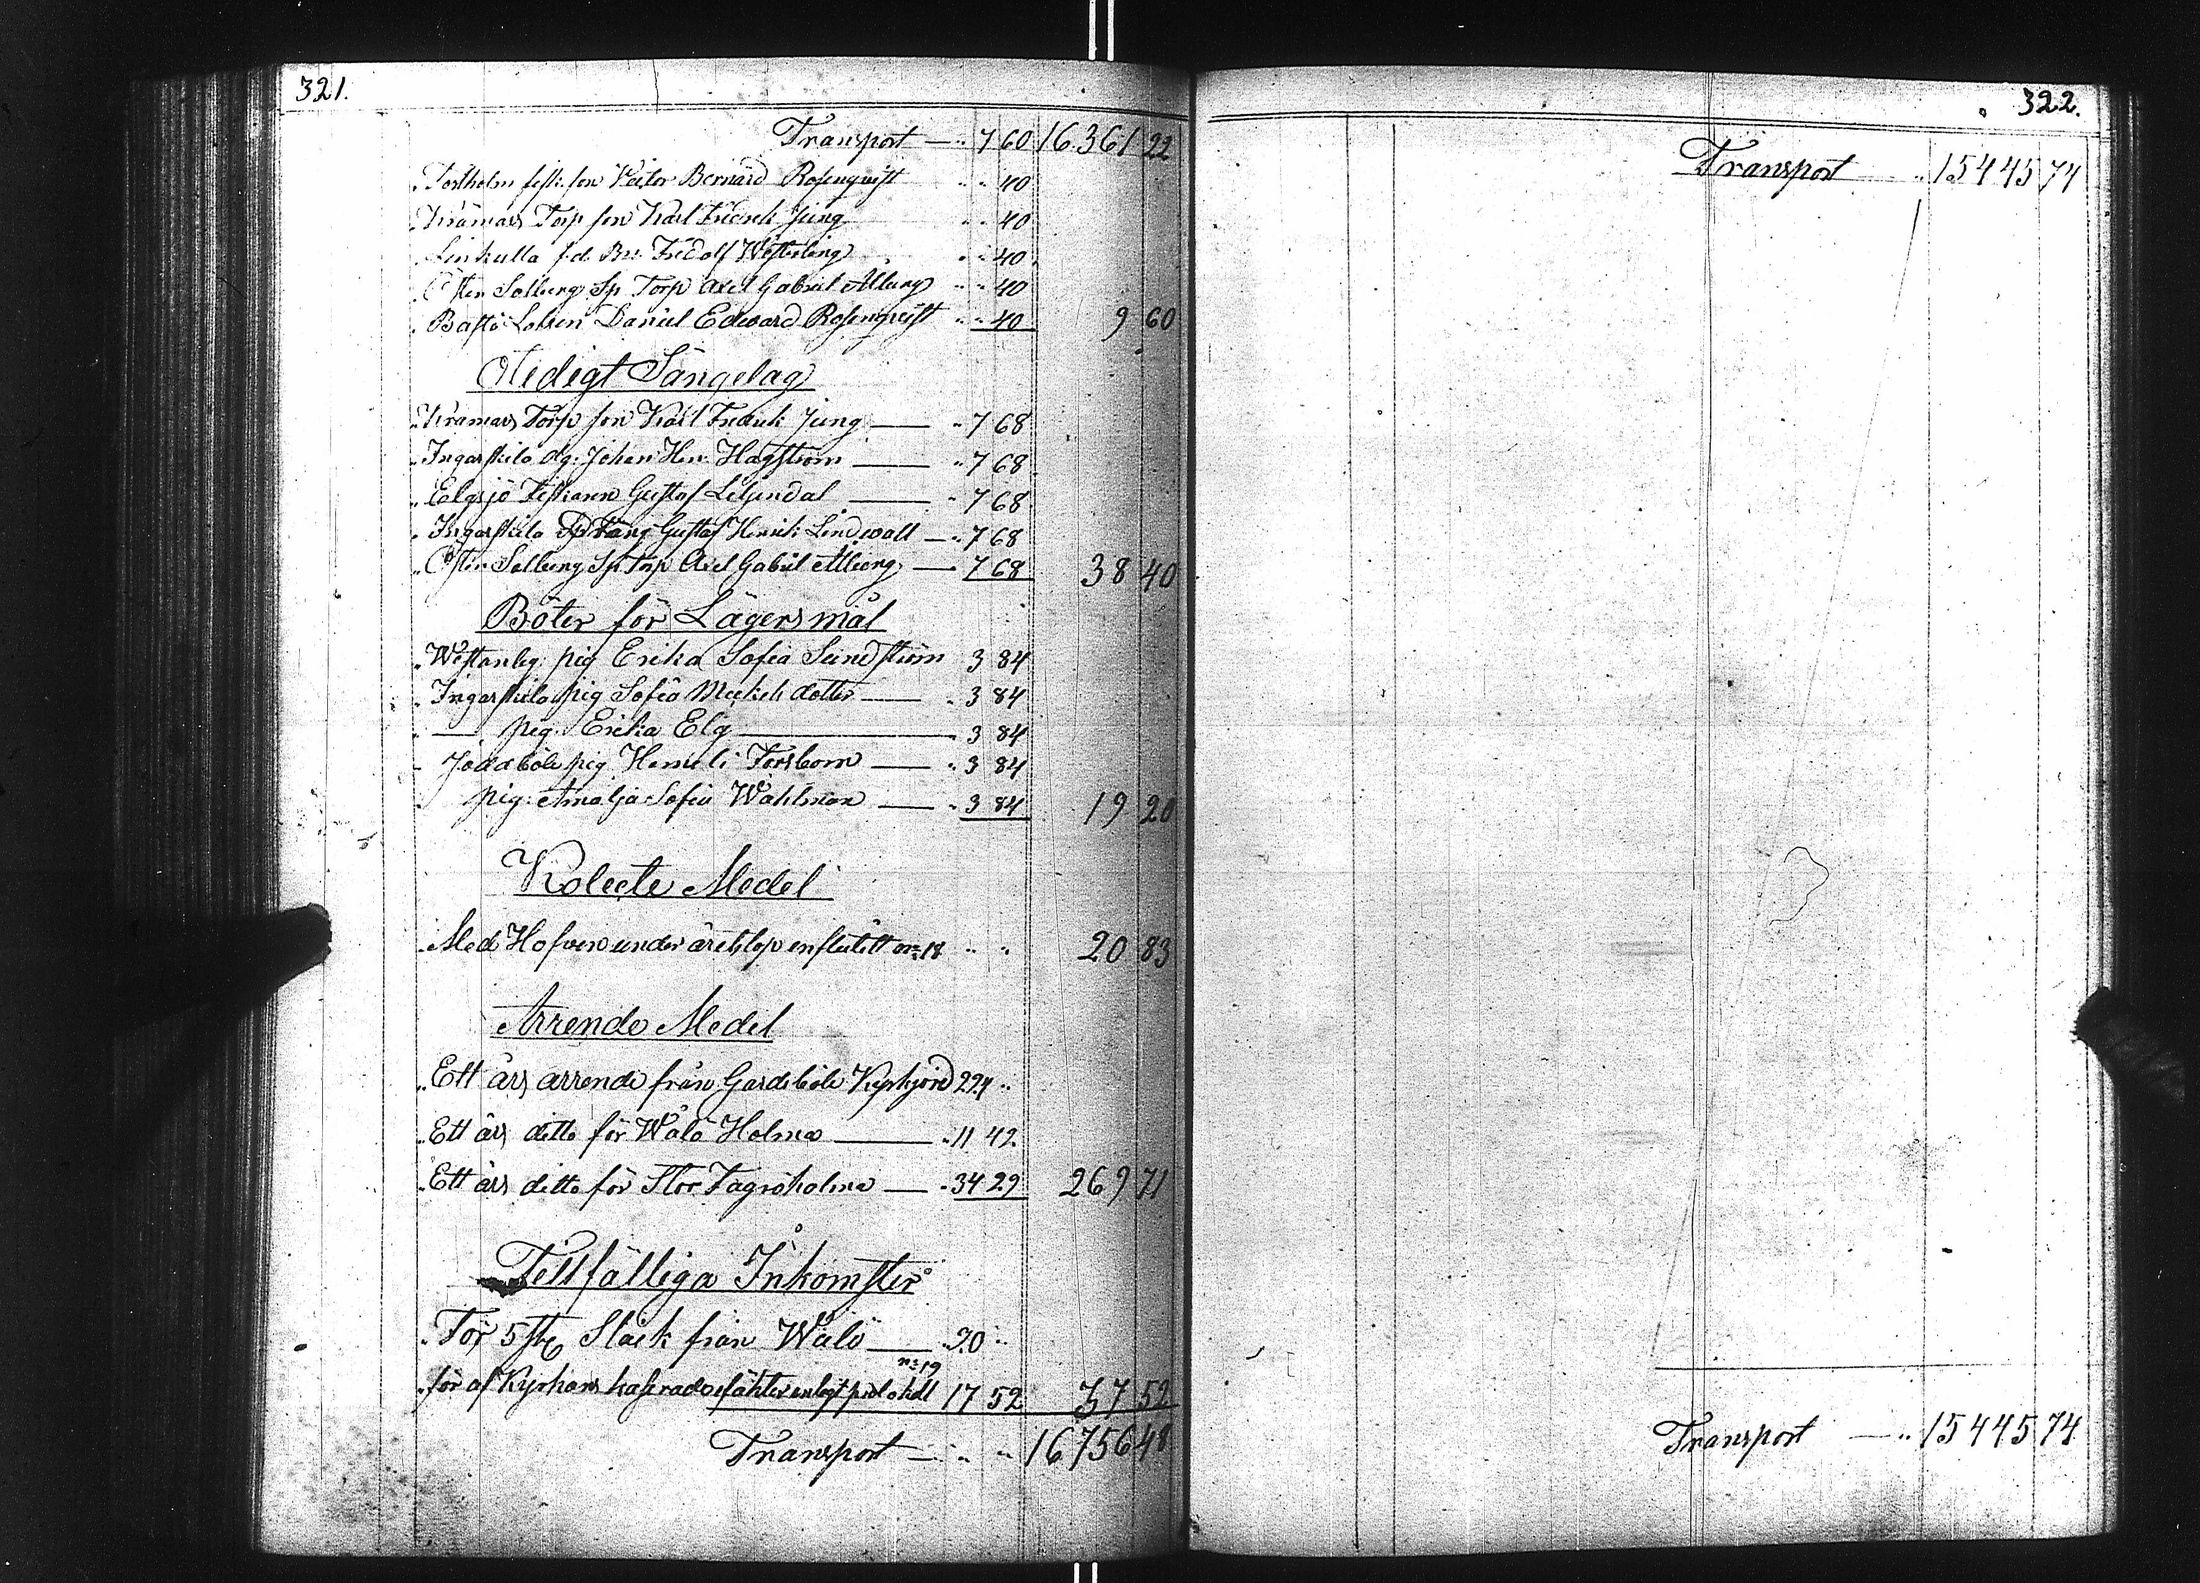 321.
Transport — 7 60 16.361 22
Torsholm fisk. son Victor Bernard Rosenqvist 40
Kramars Torp son Karl Fredrik Jung 40
Linkulla f.d. Bn. Fredolf Westerling 40
Östen Solberg Sp Torp Axel Gabriel Alberg 40
Bastö Lotsen Daniel Edward Rosenqvist 40 9 60
Oledigt Sängelag
Kramars Torp son Karl Fredrik Jung — 7 68
Ingarskila dg: Johan Hen: Hagström — 7 68
Elgsjö Fiskaren Gustaf Liljendal — 7 68
Ingarskila Gustaf Henrik Lindwall — 7 68
Östen Solberg Sp Torp Axel Gabriel Alberg — 7 68 38 40
Böter för Lägersmål
Westanbg: pig Erika Sofia Sundström 3 84
Ingarskila pig Sofia Mickelsdotter — 3 84
— pig. Erika Elg — 3 84
Joddböle pig Forsbom — 3 84
pig. Amalja Sofia Wahlman — 3 84 19 20
Kolecte Medel
Med Hofven under årets lop influtitt nr: 18 20 83
Arrende Medel
Ett års arrende från Gardsböle Kyrkjord 224
Ett års ditto för Wålö Holma — 11 42
Ett års ditto för Stor Fagröholma — 34 29 269 71
Tillfälliga Inkomster
För 5 st Stock från Wålö — 20
nr: 19
för af Kyrkans enligt protokoll 17 52 37 52
Transport — 16756 48
322.
Transport 15445 74
Transport — 15445 74